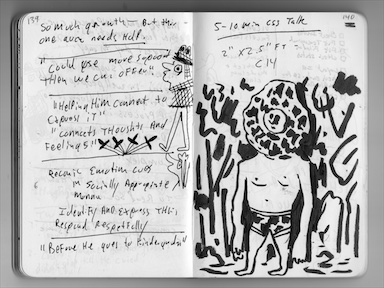 139
So much growth - But this
one area needs Help
"Could use more support
Then we can offer"
"Helping Him Connect to
Express it"
"Connects Thoughts And
Feelings"
Recognize Emotion cues
in Socially Appropriate
Manner
Identify And Express This,
Respond Respectfully
"Before He goes to Kindergarten"
140
5-10 min CSS Talk
2" x 2.5" FT -
C14